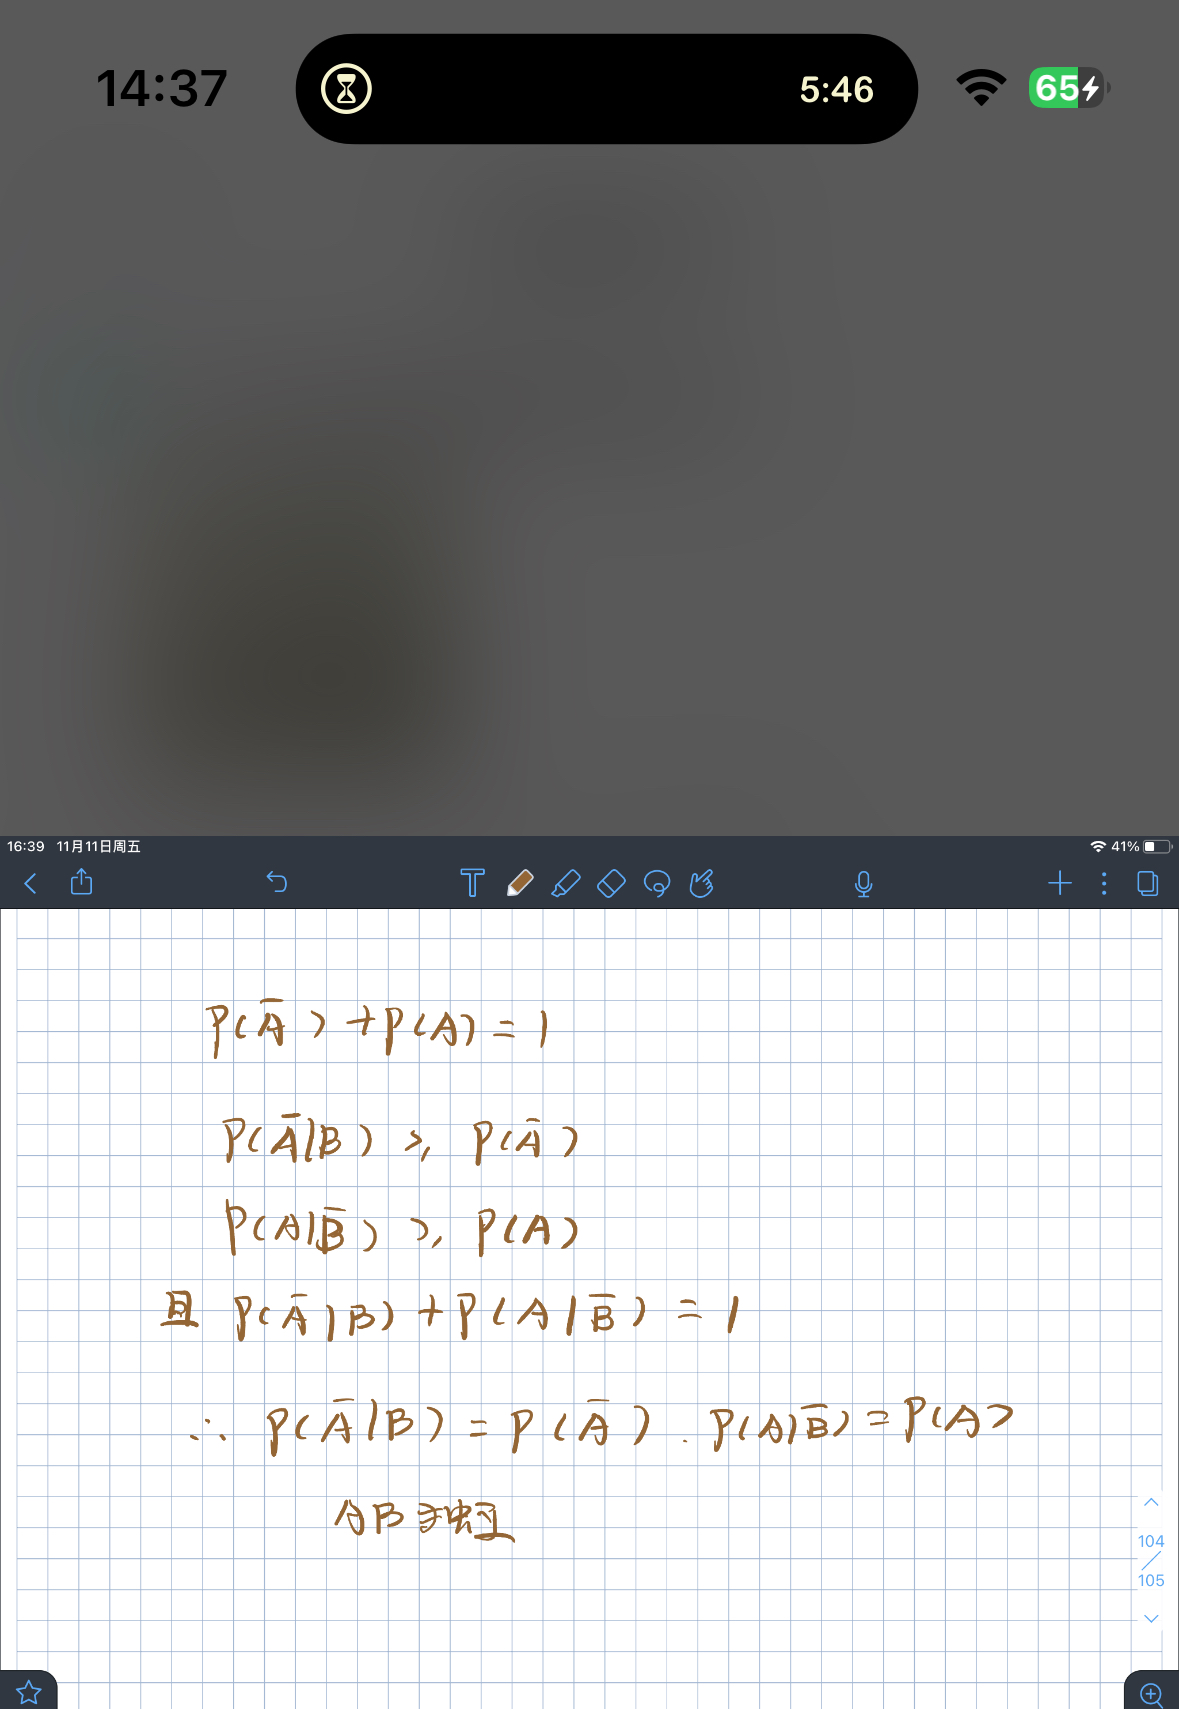 14:37 5:46 65
16:39 11月11日周五 41%
P(Ā) + P(A) = 1
P(Ā|B) ≥ P(Ā)
P(A|B̄) ≥ P(A)
且 P(Ā|B) + P(A|B̄) = 1
∴ P(Ā|B) = P(Ā). P(A|B̄) = P(A)
AB 独立
104
105